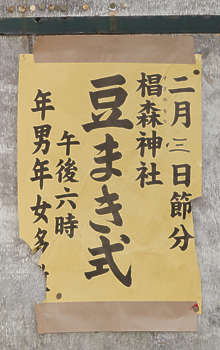 二月三日節分
椙森神社
豆まき式
午後六時
年男年女多